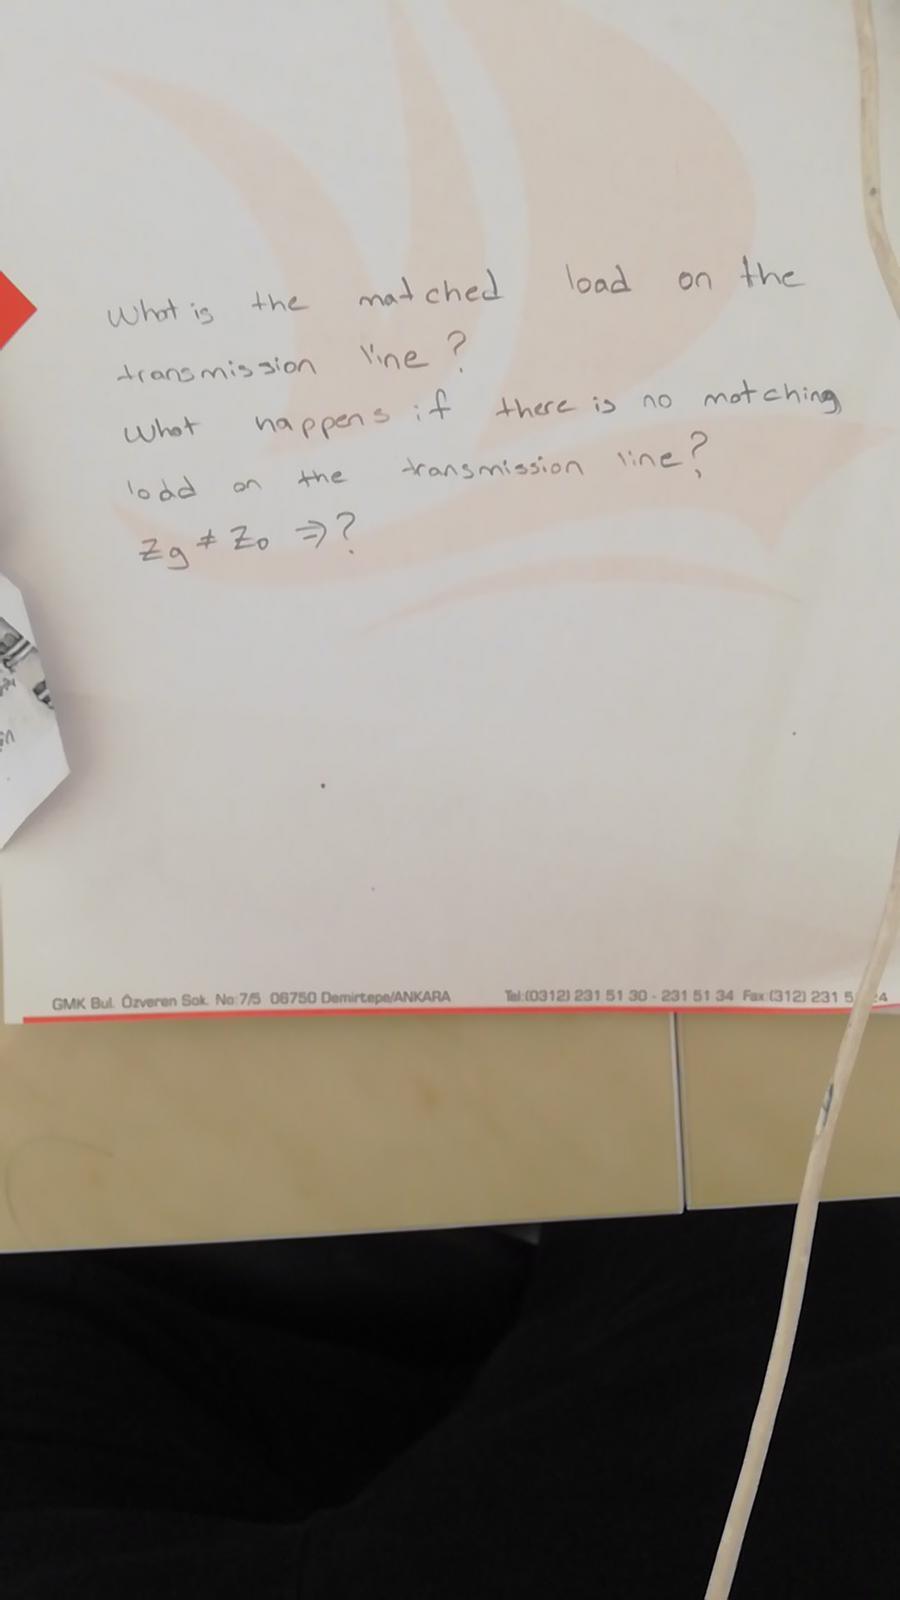 What is the matched load on the
transmission line?
What happens if there is no matching
load on the transmission line?
Zg ≠ Z0 ⇒ ?
GMK Bul. Özveren Sok. No:7/5 06750 Demirtepe/ANKARA Tel:(0312) 231 51 30 - 231 51 34 Fax:(312) 231